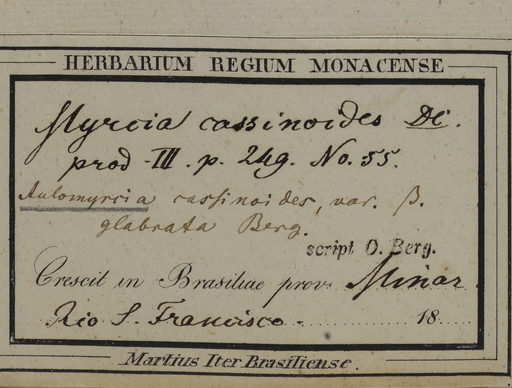 HERBARIUM REGIUM MONACENSE
Myrcia cassinoides DC.
prod. III. p. 249. No. 55.
Aulomyrcia cassinoides, var. β.
glabrata Berg.
script O. Berg.
Crescit in Brasiliae prov: Minar
Rio S. Francisco 18
Martius Iter Brasiliense.